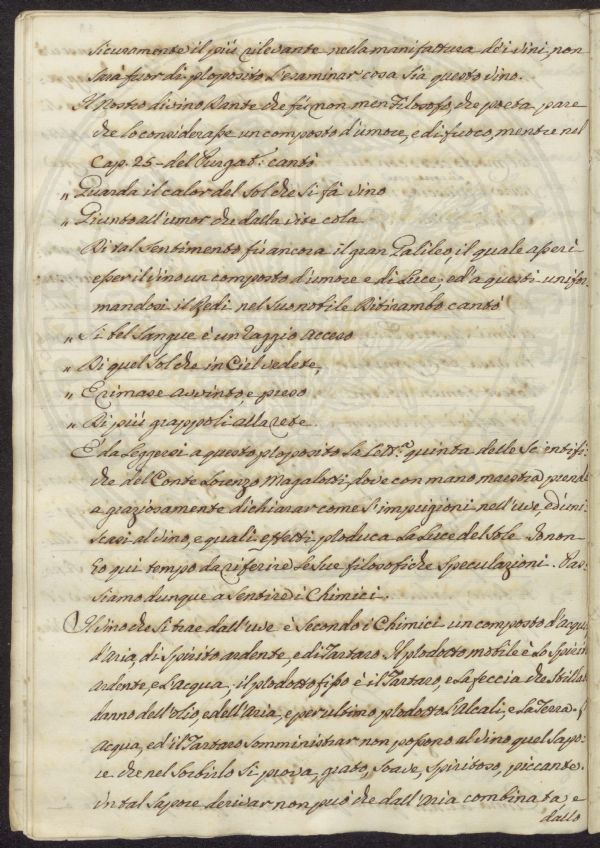 sicuramente il piú rilevante nella manifattura dei vini, non
sarà fuor di proposito l'esaminar cosa sia questo vino.
Il Nostro divino Dante che fù non men Filosofo, che poeta, pare
che lo considerasse un composto d'umore, e di fuoco, mentre nel
Cap. 25 del Purgat: cantò
„ Guarda il calor del Sol che si fà vino
„ Giunto all'umor che dalla vite cola.
Di tal sentimento fù ancora il gran Galileo, il quale asserì
esser il vino un composto d'umore e di Luce; ed a questi unifor-
mandosi il Redi nel suo nobile Ditirambo cantò
„ Si bel sangue è un raggio acceso
„ Di quel Sol che in Ciel vedete,
„ E rimase avvinto, e preso
„ Di più grappoli alla rete.
È da leggersi a questo proposito la Lett.ra quinta delle Scientifi-
che del Conte Lorenzo Magalotti, dove con mano maestra prende
a graziosamente dichiarar come s'imprigioni nell'uve, ed uni-
scasi al vino, e quali effetti produca la Luce del Sole. Io non
ho qui tempo da riferire le sue filosofiche speculazioni. Pas-
siamo dunque a sentire i Chimici.
Il vino che si trae dall'uve è secondo i Chimici un composto d'acqua
d'aria, di spirito ardente, e di Tartaro. Il prodotto mobile è lo spirito
ardente, e l'acqua; il prodotto fisso è il Tartaro, e la feccia che stillati
danno dell'olio e dell'aria, e per ultimo prodotto l'Alcali, e la Terra.
Acqua, ed il Tartaro somministrar non possono al vino quel sapo-
re che nel sorbirlo si prova, grato, soave, spiritoso, piccante.
in tal sapore derivar non può che dall'aria combinata, e
dallo